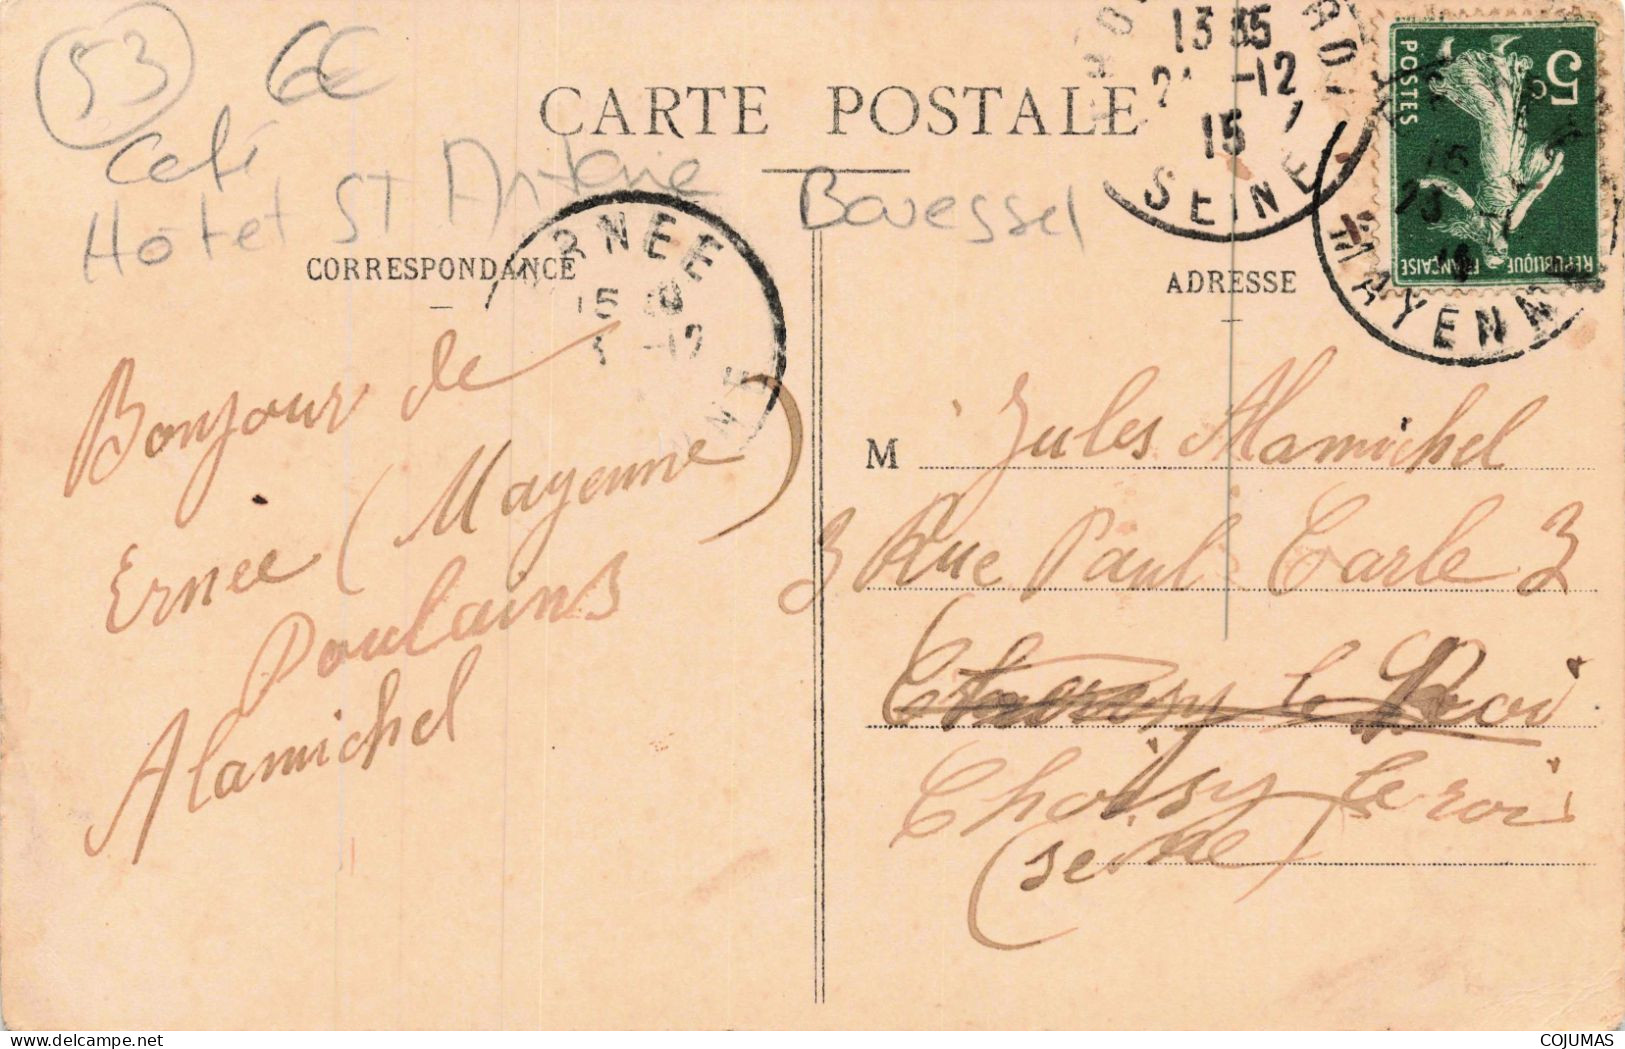 53
6€
Café
Hotel St Antoine
Bouessel
CARTE POSTALE
CORRESPONDANCE
ADRESSE
ERNEE
-12
13 35
2 -12
15
SEINE
MAYENNE
5c
POSTES
REPUBLIQUE FRANÇAISE
Bonjour de
Ernée (Mayenne)
Poulains
Alamichel
M Jules Alamichel
3 Rue Paul Carle 3
Choisy le Roi
Choisy le roi
(seine)
COJUMAS